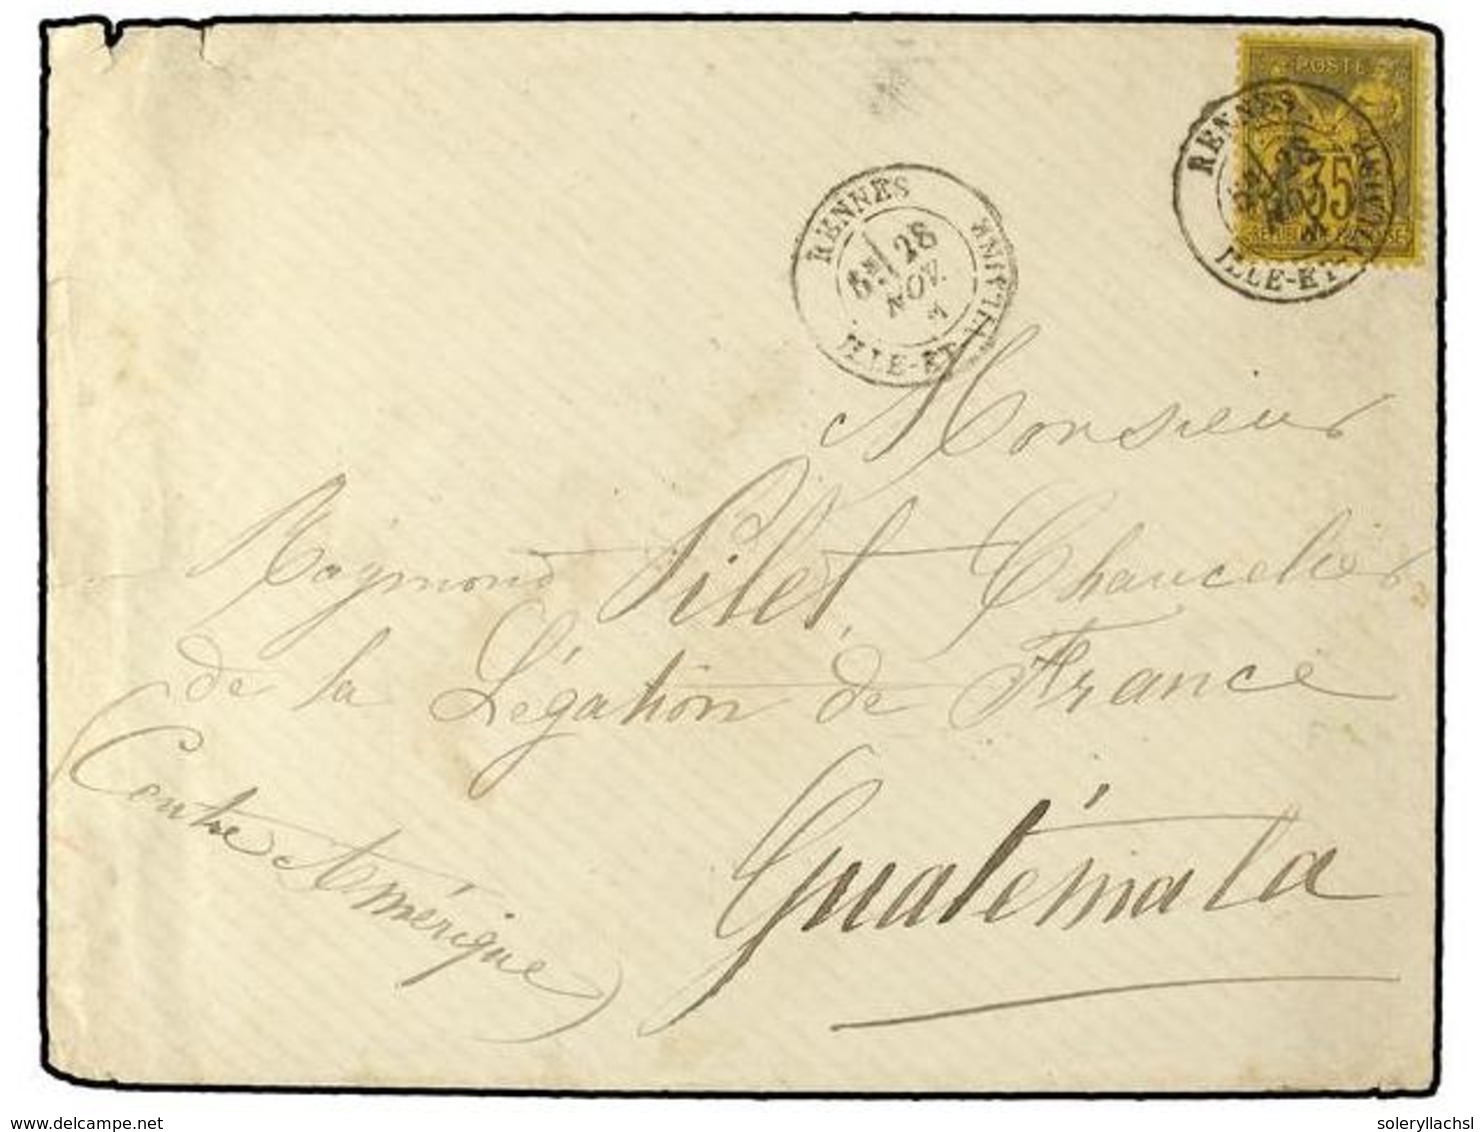 POSTE
35
RENNES
ILLE-ET-VILAINE
RENNES
5E 28
NOV.
ILLE-ET-VILAINE
Monsieur
Raymond Pilet, Chancelier
de la Légation de France
Guatémala
(Centre Amérique)
www.delcampe.net
soleryllachsl